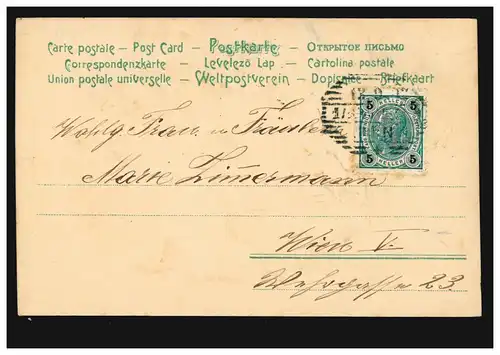 Carte postale – Post Card – Postkarte – Открытое письмо
Correspondenzkarte – Levelező Lap – Cartolina postale
Union postale universelle – Weltpostverein – Dopisnice – Briefkaart
5 5
HELLER
5 5
Wohlg. Frau u Fräulein
Marie Zimmermann
Wien V.
Wehrgasse 23.